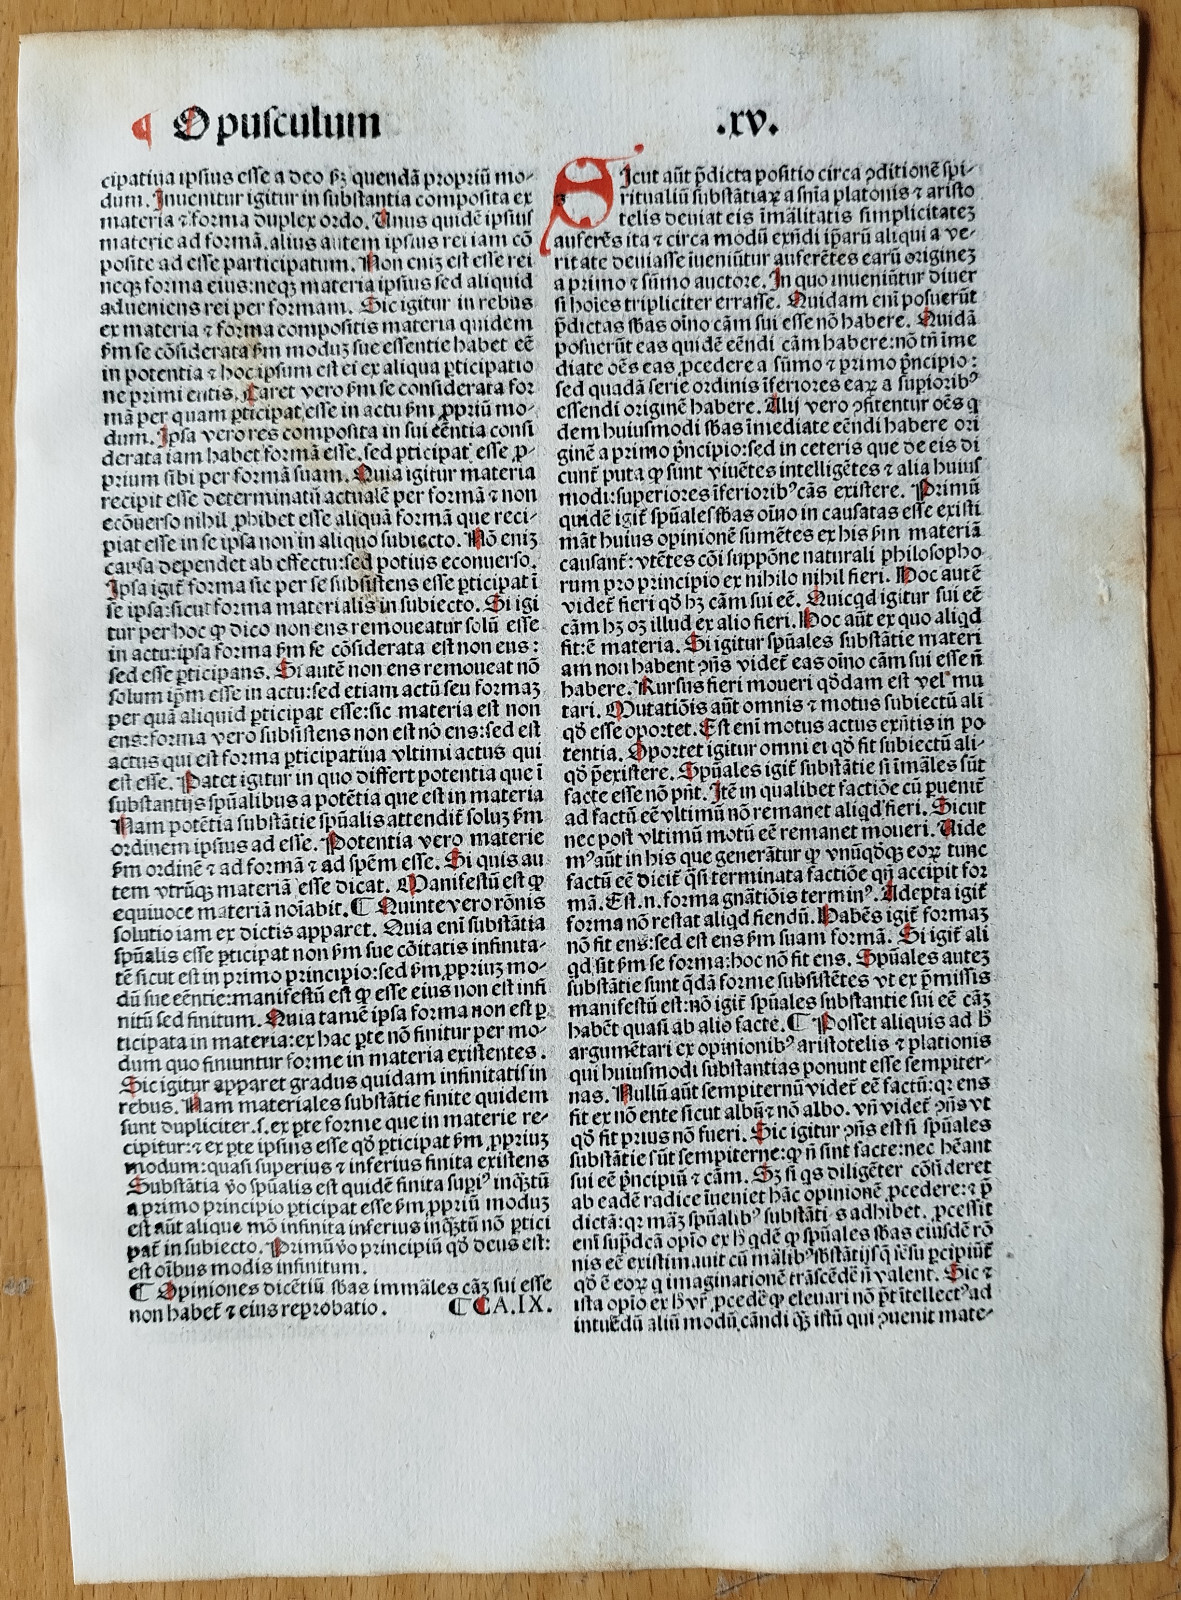 ¶ Opusculum .xv.
cipatiua ipsius esse a deo ẜꝫ quendā propriū mo-
dum. Inuenitur igitur in substantia composita ex
materia ⁊ forma duplex ordo. Unus quidē ipsius
materie ad formā. alius autem ipsius rei iam cō
posite ad esse participatum. Non eniꝫ est esse rei
neqꝫ forma eius: neqꝫ materia ipsius sed aliquid
adueniens rei per formam. Sic igitur in rebus
ex materia ⁊ forma compositis materia quidem
ẜm se cōsiderata ẜm moduꝫ sue essentie habet eē
in potentia ⁊ hoc ipsum est ei ex aliqua ꝑticipatio
ne primi entis. Caret vero ẜm se considerata for
mā per quam ꝑticipat esse in actu ẜm ꝓpriū mo-
dum. Ipsa vero res composita in sui eēntia consi
derata iam habet formā esse. sed ꝑticipat esse ꝓ-
prium sibi per formā suam. Quia igitur materia
recipit esse determinatū actualē per formā ⁊ non
ecōuerso nihil ꝓhibet esse aliquā formā que reci-
piat esse in se ipsa non in aliquo subiecto. Nō eniꝫ
causa dependet ab effectu: sed potius econuerso.
Ipsa igit̃ forma sic per se subsistens esse ꝑticipat ī
se ipsa: sicut forma materialis in subiecto. Si igi
tur per hoc ꝙ dico non ens remoueatur solū esse
in actu: ipsa forma ẜm se cōsiderata est non ens:
sed esse ꝑticipans. Si autē non ens remoueat nō
solum ip̄m esse in actu: sed etiam actū seu formaꝫ
per quā aliquid ꝑticipat esse: sic materia est non
ens: forma vero subsistens non est nō ens: sed est
actus qui est forma ꝑticipatiua vltimi actus qui
est esse. Patet igitur in quo differt potentia que ī
substantijs spūalibus a potētia que est in materia
Nam potētia substātie spūalis attendit̃ soluꝫ ẜm
ordinem ipsius ad esse. Potentia vero materie
ẜm ordinē ⁊ ad formā ⁊ ad spēm esse. Si quis au
tem vtrūqꝫ materiā esse dicat. Manifestū est ꝙ
equiuoce materiā noīabit. ¶ Quinte vero rōnis
solutio iam ex dictis apparet. Quia enī substātia
spūalis esse ꝑticipat non ẜm sue cōitatis infinita-
tē sicut est in primo principio: sed ẜm ꝓpriuꝫ mo-
dū sue eēntie: manifestū est ꝙ esse eius non est infi
nitū sed finitum. Quia tamē ipsa forma non est ꝑ
ticipata in materia: ex hac ꝑte nō finitur per mo-
dum quo finiuntur forme in materia existentes.
Sic igitur apparet gradus quidam infinitatis in
rebus. Nam materiales substātie finite quidem
sunt dupliciter. s. ex ꝑte forme que in materie re-
cipitur: ⁊ ex ꝑte ipsius esse qđ ꝑticipat ẜm ꝓpriuꝫ
modum: quasi superius ⁊ inferius finita existens
Substātia v̄o spūalis est quidē finita supiꝰ inqꝫtū
a primo principio ꝑticipat esse ẜm ꝓpriū moduꝫ
est aūt alique mō infinita inferius inqꝫtū nō ꝑtici
pat̃ in subiecto. Primū v̄o principiū qđ deus est:
est oībus modis infinitum.
¶ Opiniones dicētiū sbas immāles cāꝫ sui esse
non habet̃ ⁊ eius reprobatio. ¶ CA. IX.
Sicut aūt p̄dicta positio circa ꝯditionē spi-
ritualiū substātiaꝝ a snīa platonis ⁊ aristo
telis deuiat eis īmālitatis simplicitateꝫ
auferēs ita ⁊ circa modū exn̄di ip̄arū aliqui a ve-
ritate deuiasse īueniūtur auferētes earū origineꝫ
a primo ⁊ sūmo auctore. In quo inueniūtur diuer
si hoīes tripliciter errasse. Quidam enī posuerūt
p̄dictas sbas oīno cām sui esse nō habere. Quidā
posuerūt eas quidē eēndi cām habere: nō tn̄ ime
diate oēs eas ꝓcedere a sūmo ⁊ primo p̄ncipio:
sed quadā serie ordinis īferiores eaꝝ a supioribꝰ
essendi originē habere. Alij vero ꝯfitentur oēs q
dem huiusmodi sbas īmediate eēndi habere ori
ginē a primo p̄ncipio: sed in ceteris que de eis di
cunt̃ puta ꝙ sunt viuētes intelligētes ⁊ alia huius
modi: superiores īferioribꝰ cās existere. Primū
quidē igit̃ spūales sbas oīno in causatas esse existi
māt huius opinionē sumētes ex his ẜm materiā
causant̃: vtētes cōi suppōne naturali philosopho
rum pro principio ex nihilo nihil fieri. Hoc autē
videt̃ fieri qđ hꝫ cām sui eē. Quicqd igitur sui eē
cām hꝫ oꝫ illud ex alio fieri. Hoc aūt ex quo aliqd
fit: ē materia. Si igitur spūales substātie materi
am non habent ꝯn̄s videt̃ eas oīno cām sui esse n̄
habere. Rursus fieri moueri qđdam est vel mu
tari. Mutatiōis aūt omnis ⁊ motus subiectū ali
qđ esse oportet. Est enī motus actus exn̄tis in po
tentia. Oportet igitur omni ei qđ fit subiectū ali-
qđ p̄existere. Spūales igit̃ substātie si īmāles sūt
facte esse nō pn̄t. Itē in qualibet factiōe cū ꝑuenit̃
ad factū eē vltimū nō remanet aliqd fieri. Sicut
nec post vltimū motū eē remanet moueri. Uide
mꝰ aūt in his que generātur ꝙ vnūqđqꝫ eoꝝ tunc
factū eē dicit̃ qn̄ terminata factiōe qn̄ accipit for
mā. Est. n. forma gnātiōis terminꝰ. Adepta igit̃
forma nō restat aliqd fiendū. Habēs igit̃ formaꝫ
nō fit ens: sed est ens ẜm suam formā. Si igit̃ ali
qd sit ẜm se forma: hoc nō fit ens. Spūales auteꝫ
substātie sunt q̄dā forme subsistētes vt ex p̄missis
manifestū est: nō igit̃ spūales substantie sui eē cāꝫ
habēt quasi ab alio facte. ¶ Posset aliquis ad h̄
argumētari ex opinionibꝰ aristotelis ⁊ platonis
qui huiusmodi substantias ponunt esse sempiter-
nas. Nullū aūt sempiternū videt̃ eē factū: qꝛ ens
fit ex nō ente sicut albū ⁊ nō albo. vn̄ videt̃ ꝯn̄s vt
qđ fit prius nō fueri. Sic igitur ꝯn̄s est si spūales
substātie sūt sempiterne: ꝙ n̄ sint facte: nec hēant
sui eē p̄ncipiū ⁊ cām. Sꝫ si qs diligēter cōsideret
ab eadē radice īueniet hāc opinionē ꝓcedere: ⁊ p̄
dictā: qꝛ māꝫ spūalibꝰ substātijs adhibet. ꝓcessit
enī sup̄dcā opio ex h̄ qdē ꝙ spūales sbas eiusdē rō
nis eē existimauit cū mālibꝰ sbstātijs q̄ sēsu ꝑcipiūt̃
qđ ē eoꝝ q imaginationē trāscēdē n̄ valent. Sic ⁊
ista opio ex h̄ vr̄ ꝓcedē ꝙ eleuari nō pōt ītellectꝰ ad
intuēdū aliū modū cāndi qꝫ istū qui ꝯuenit mate-